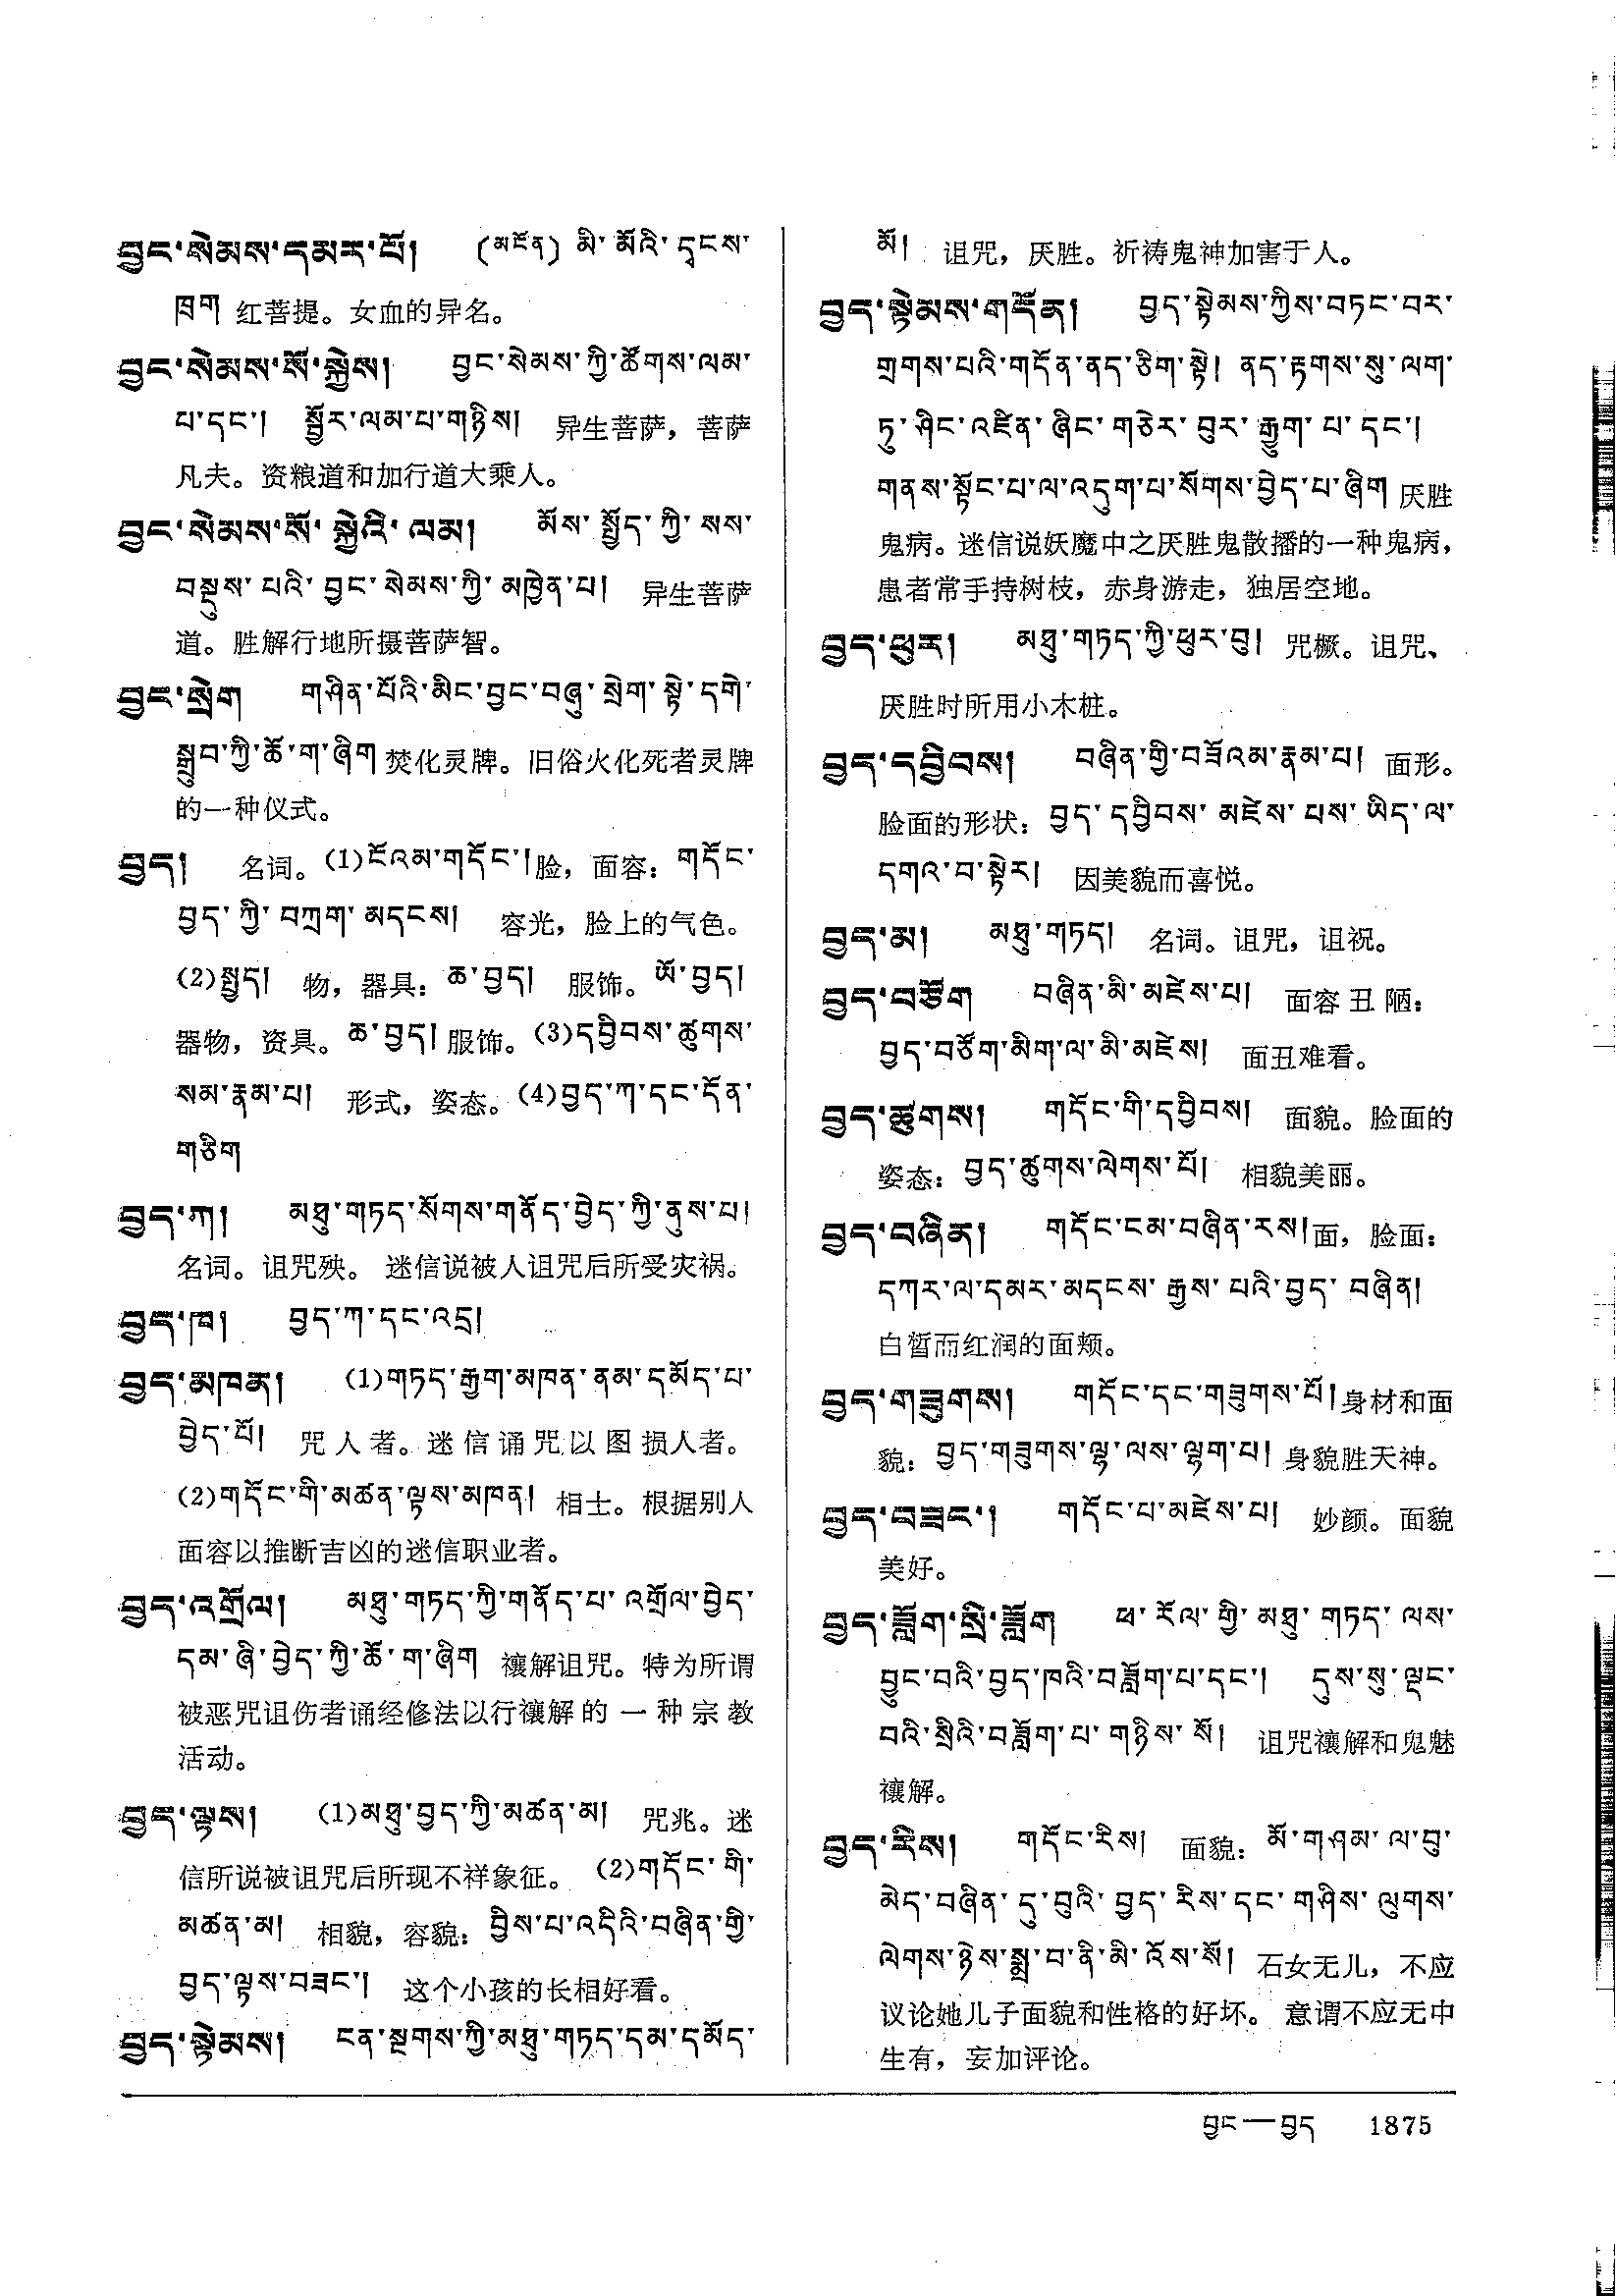 བྱང་སེམས་དམར་པོ།   (མངོན) མི་མོའི་དྭངས་
ཁྲག 红菩提。女血的异名。
བྱང་སེམས་སོ་སྐྱེས།   བྱང་སེམས་ཀྱི་ཚོགས་ལམ་
པ་དང་། སྦྱོར་ལམ་པ་གཉིས། 异生菩萨，菩萨
凡夫。资粮道和加行道大乘人。
བྱང་སེམས་སོ་སྐྱེའི་ལམ།   མོས་སྤྱོད་ཀྱི་སས་
བསྡུས་པའི་བྱང་སེམས་ཀྱི་མཁྱེན་པ། 异生菩萨
道。胜解行地所摄菩萨智。
བྱང་སྲེག   གཤིན་པོའི་མིང་བྱང་བཞུ་སྲེག་སྟེ་དགེ་
སྒྲུབ་ཀྱི་ཆོ་ག་ཞིག 焚化灵牌。旧俗火化死者灵牌
的一种仪式。
བྱད།   名词。(1)ངོའམ་གདོང་། 脸，面容：གདོང་
བྱད་ཀྱི་བཀྲག་མདངས། 容光，脸上的气色。
(2)སྤྱད། 物，器具：ཆ་བྱད། 服饰。ཡོ་བྱད།
器物，资具。ཆ་བྱད། 服饰。(3)དབྱིབས་ཚུགས་
སམ་རྣམ་པ། 形式，姿态。(4)བྱད་ཀ་དང་དོན་
གཅིག
བྱད་ཀ།   མཐུ་གཏད་སོགས་གནོད་བྱེད་ཀྱི་ནུས་པ།
名词。诅咒殃。 迷信说被人诅咒后所受灾祸。
བྱད་ཁ།   བྱད་ཀ་དང་འདྲ།
བྱད་མཁན།   (1)གཏད་རྒྱག་མཁན་ནམ་དམོད་པ་
བྱེད་པོ། 咒人者。迷信诵咒以图损人者。
(2)གདོང་གི་མཚན་ལྟས་མཁན། 相士。根据别人
面容以推断吉凶的迷信职业者。
བྱད་འགྲོལ།   མཐུ་གཏད་ཀྱི་གནོད་པ་འགྲོལ་བྱེད་
དམ་ཞི་བྱེད་ཀྱི་ཆོ་ག་ཞིག 禳解诅咒。特为所谓
被恶咒诅伤者诵经修法以行禳解的一种宗教
活动。
བྱད་ལྟས།   (1)མཐུ་བྱད་ཀྱི་མཚན་མ། 咒兆。迷
信所说被诅咒后所现不祥象征。(2)གདོང་གི་
མཚན་མ། 相貌，容貌：བྱིས་པ་འདིའི་བཞིན་གྱི་
བྱད་ལྟས་བཟང་། 这个小孩的长相好看。
བྱད་སྟེམས།   ངན་སྔགས་ཀྱི་མཐུ་གཏད་དམ་དམོད་
མོ། 诅咒，厌胜。祈祷鬼神加害于人。
བྱད་སྟེམས་གདོན།   བྱད་སྟེམས་ཀྱིས་བཏང་བར་
གྲགས་པའི་གདོན་ནད་ཅིག་སྟེ། ནད་རྟགས་སུ་ལག་
ཏུ་ཤིང་འཛིན་ཞིང་གཅེར་བུར་རྒྱུག་པ་དང་།
གནས་སྟོང་པ་ལ་འདུག་པ་སོགས་བྱེད་པ་ཞིག 厌胜
鬼病。迷信说妖魔中之厌胜鬼散播的一种鬼病，
患者常手持树枝，赤身游走，独居空地。
བྱད་ཕུར།   མཐུ་གཏད་ཀྱི་ཕུར་བུ། 咒橛。诅咒、
厌胜时所用小木桩。
བྱད་དབྱིབས།   བཞིན་གྱི་བཟོའམ་རྣམ་པ། 面形。
脸面的形状：བྱད་དབྱིབས་མཛེས་པས་ཡིད་ལ་
དགའ་བ་སྟེར། 因美貌而喜悦。
བྱད་མ།   མཐུ་གཏད། 名词。诅咒，诅祝。
བྱད་བཙོག   བཞིན་མི་མཛེས་པ། 面容丑陋：
བྱད་བཙོག་མིག་ལ་མི་མཛེས། 面丑难看。
བྱད་ཚུགས།   གདོང་གི་དབྱིབས། 面貌。脸面的
姿态：བྱད་ཚུགས་ལེགས་པོ། 相貌美丽。
བྱད་བཞིན།   གདོང་ངམ་བཞིན་རས། 面，脸面：
དཀར་ལ་དམར་མདངས་རྒྱས་པའི་བྱད་བཞིན།
白晳而红润的面颊。
བྱད་གཟུགས།   གདོང་དང་གཟུགས་པོ། 身材和面
貌：བྱད་གཟུགས་ལྷ་ལས་ལྷག་པ། 身貌胜天神。
བྱད་བཟང་།   གདོང་པ་མཛེས་པ། 妙颜。面貌
美好。
བྱད་ཟློག་སྲི་ཟློག   ཕ་རོལ་གྱི་མཐུ་གཏད་ལས་
བྱུང་བའི་བྱད་ཁའི་བཟློག་པ་དང་། དུས་སུ་ལྡང་
བའི་སྲིའི་བཟློག་པ་གཉིས་སོ། 诅咒禳解和鬼魅
禳解。
བྱད་རིས།   གདོང་རིས། 面貌：མོ་གཤམ་ལ་བུ་
མེད་བཞིན་དུ་བུའི་བྱད་རིས་དང་གཤིས་ལུགས་
ལེགས་ཉེས་སྨྲ་བ་ནི་མི་འོས་སོ། 石女无儿，不应
议论她儿子面貌和性格的好坏。 意谓不应无中
生有，妄加评论。
བྱང—བྱད   1875